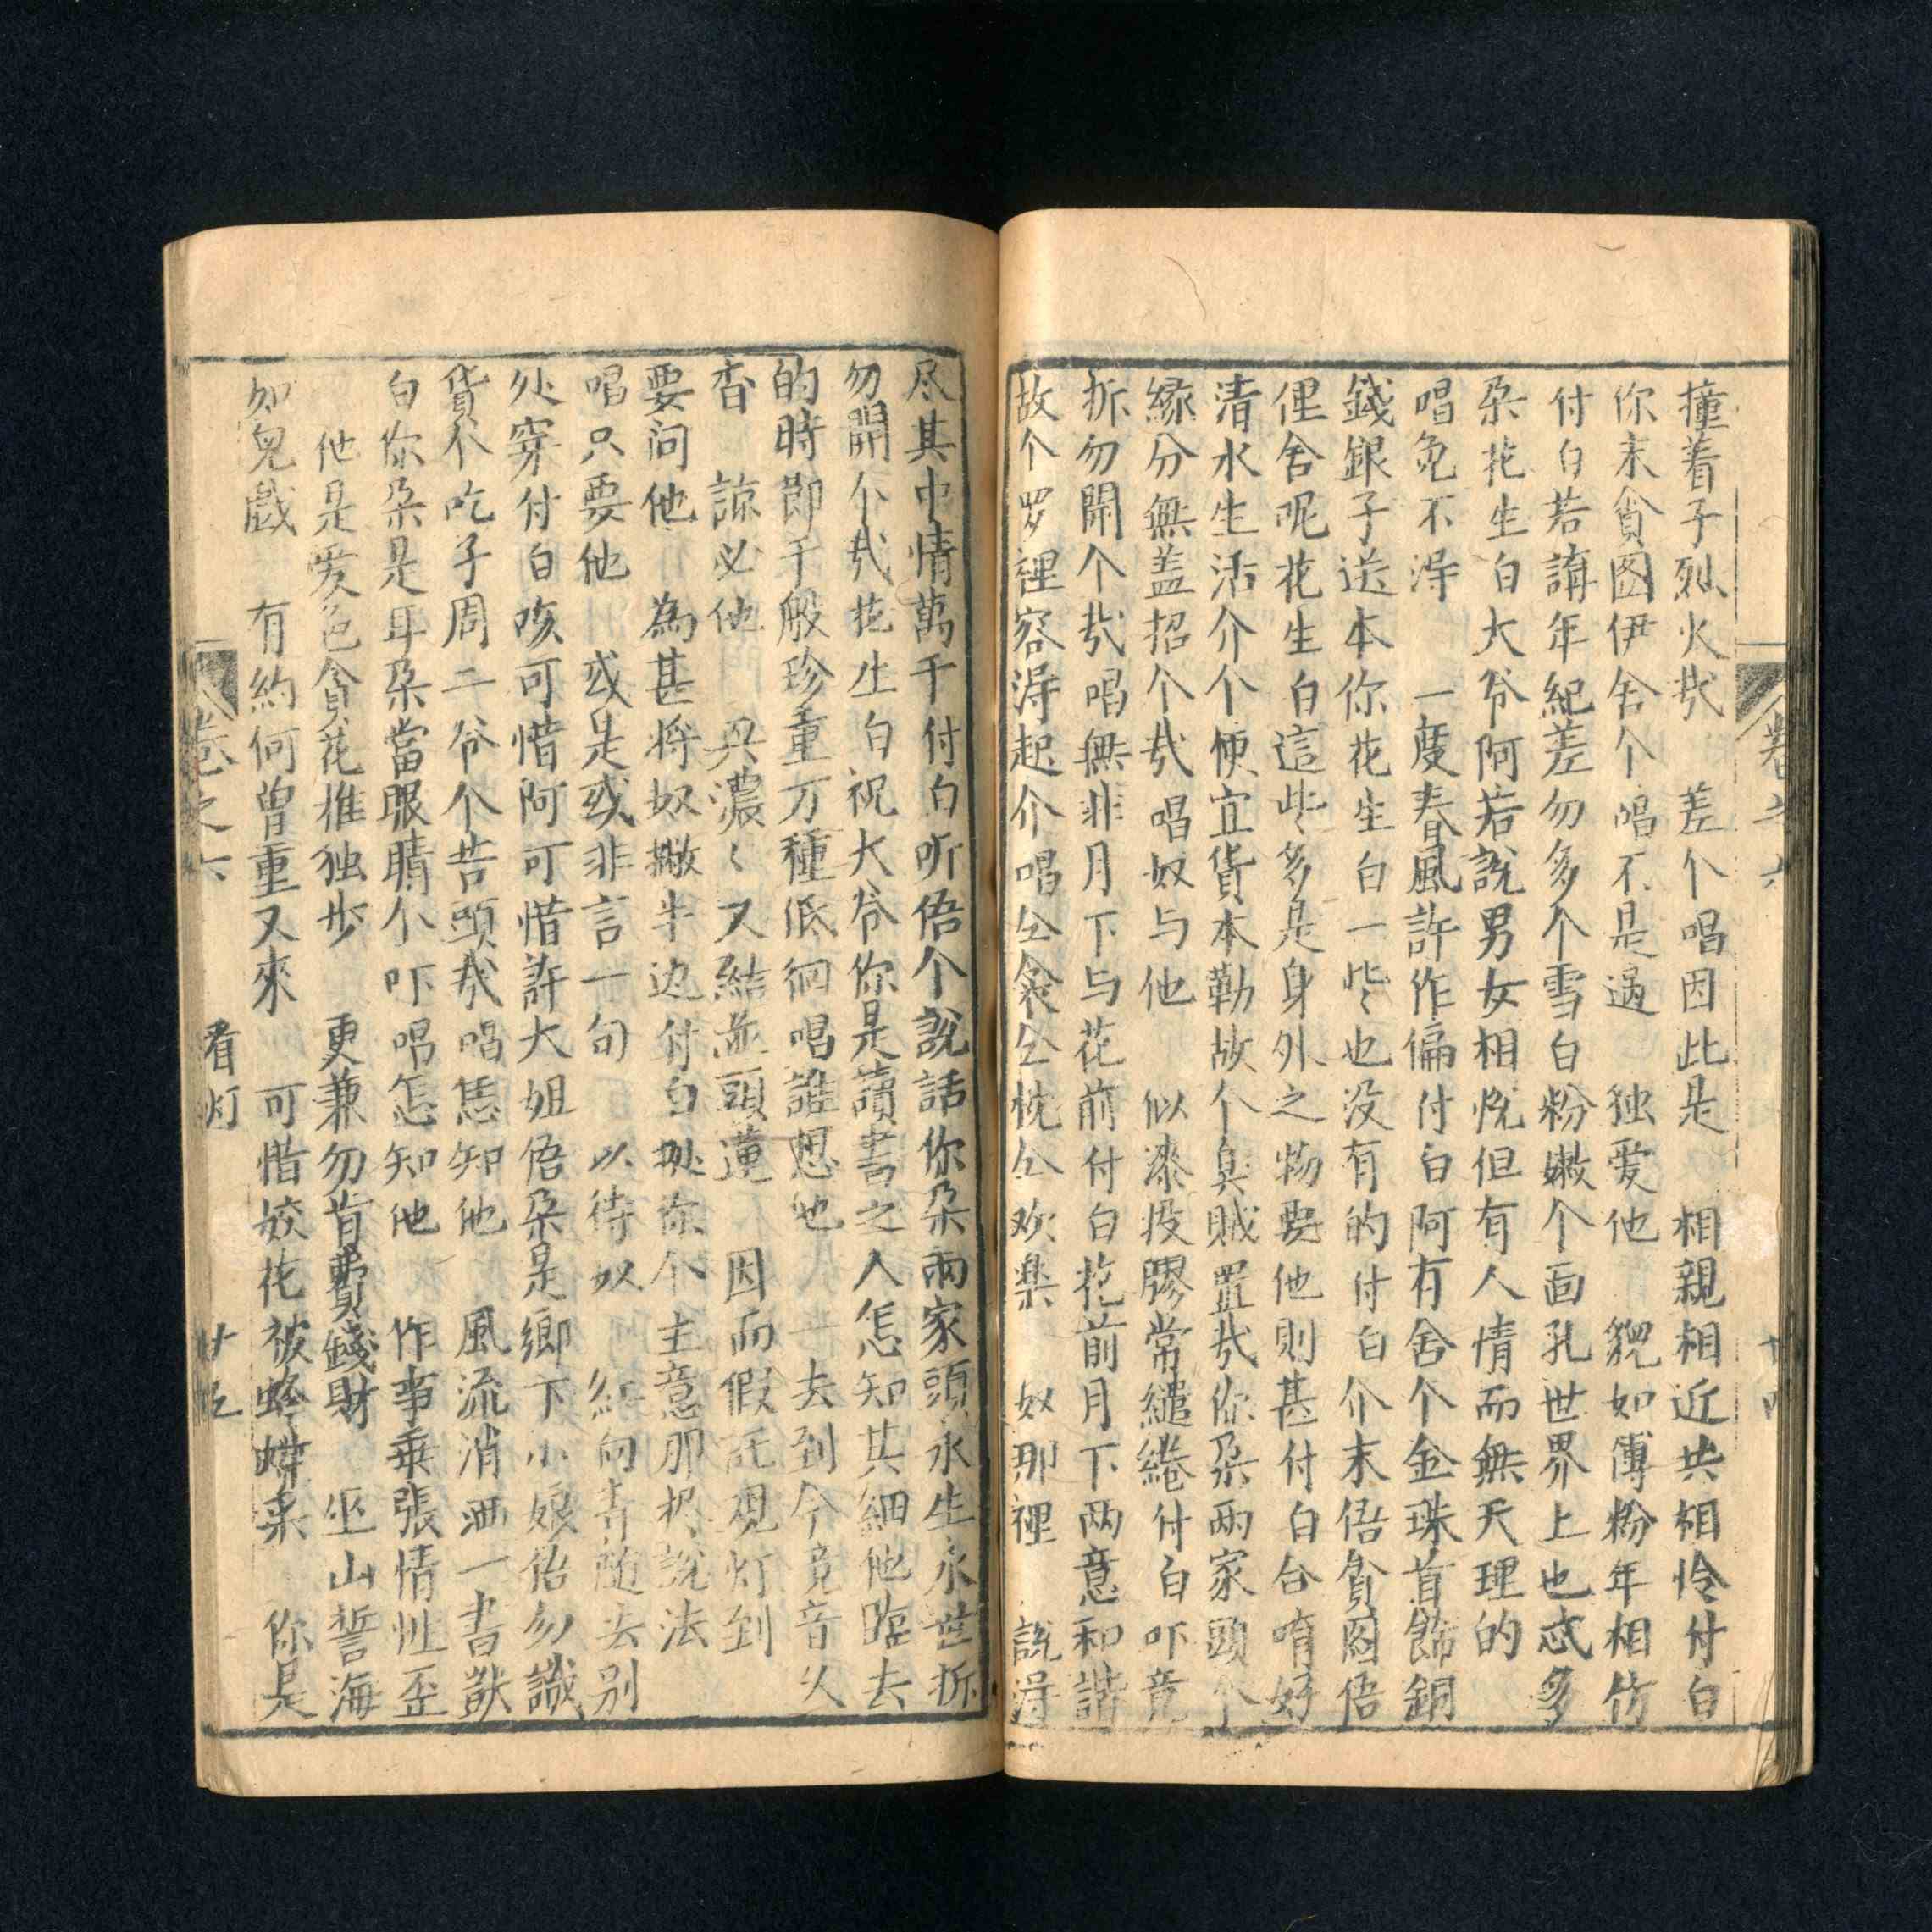 卷之六 十四
撞着子烈火哉 差个唱因此是 相親相近共相怜付白
你末貪图伊舍个 唱不是過 独爱他 貌如傅粉年相仿
付白若講年紀差勿多个雪白粉嫩个面孔世界上也忒多
朵花生白大爷阿若說男女相悦但有人情而無天理的
唱免不得 一度春風許作偏付白阿有舍个金珠首飾銅
錢銀子送本你花生白一些也没有的付白个末俉貪图俉
俚舍呢花生白這些多是身外之物要他則甚付白合唷好
清水生活介个便宜貨本勒故个臭贼置哉你朵兩家頭个
緣分無盖招个哉唱奴与他 似漆投膠常繾綣付白吓竟
拆勿開个哉唱無非月下与花前付白花前月下两意和諧
故个罗裡容得起介唱仝衾仝枕仝欢樂 奴那裡 說得
尽其中情萬千付白听俉个說話你朵兩家頭永生永世拆
勿開个哉花生白祝大爷你是讀書之人怎知其細他臨去
的時節千般珍重万種低徊唱誰想他 一去到今竟音乂
杳 諒必他 與濃〻又結並頭蓮 因而假託观灯到
要问他 為甚将奴撇半边付白據你个主意那抳說法
唱只要他 或是或非言一句 以待奴 終向青随去别
处穿付白咳可惜阿可惜許大姐俉朵是鄉下小娘俉勿識
貨不吃子周二爷个苦頭哉唱恁知他 風流消洒一書獃
白你朵是耳朵當眼睛个吓唱怎知他 作事乖張情性歪
他是爱色貪花推独步 更兼勿肯費錢財 巫山誓海
如兒戲 有約何曾重又來 可惜姣花被蜂蝶采 你是
卷之六 看灯 廿五